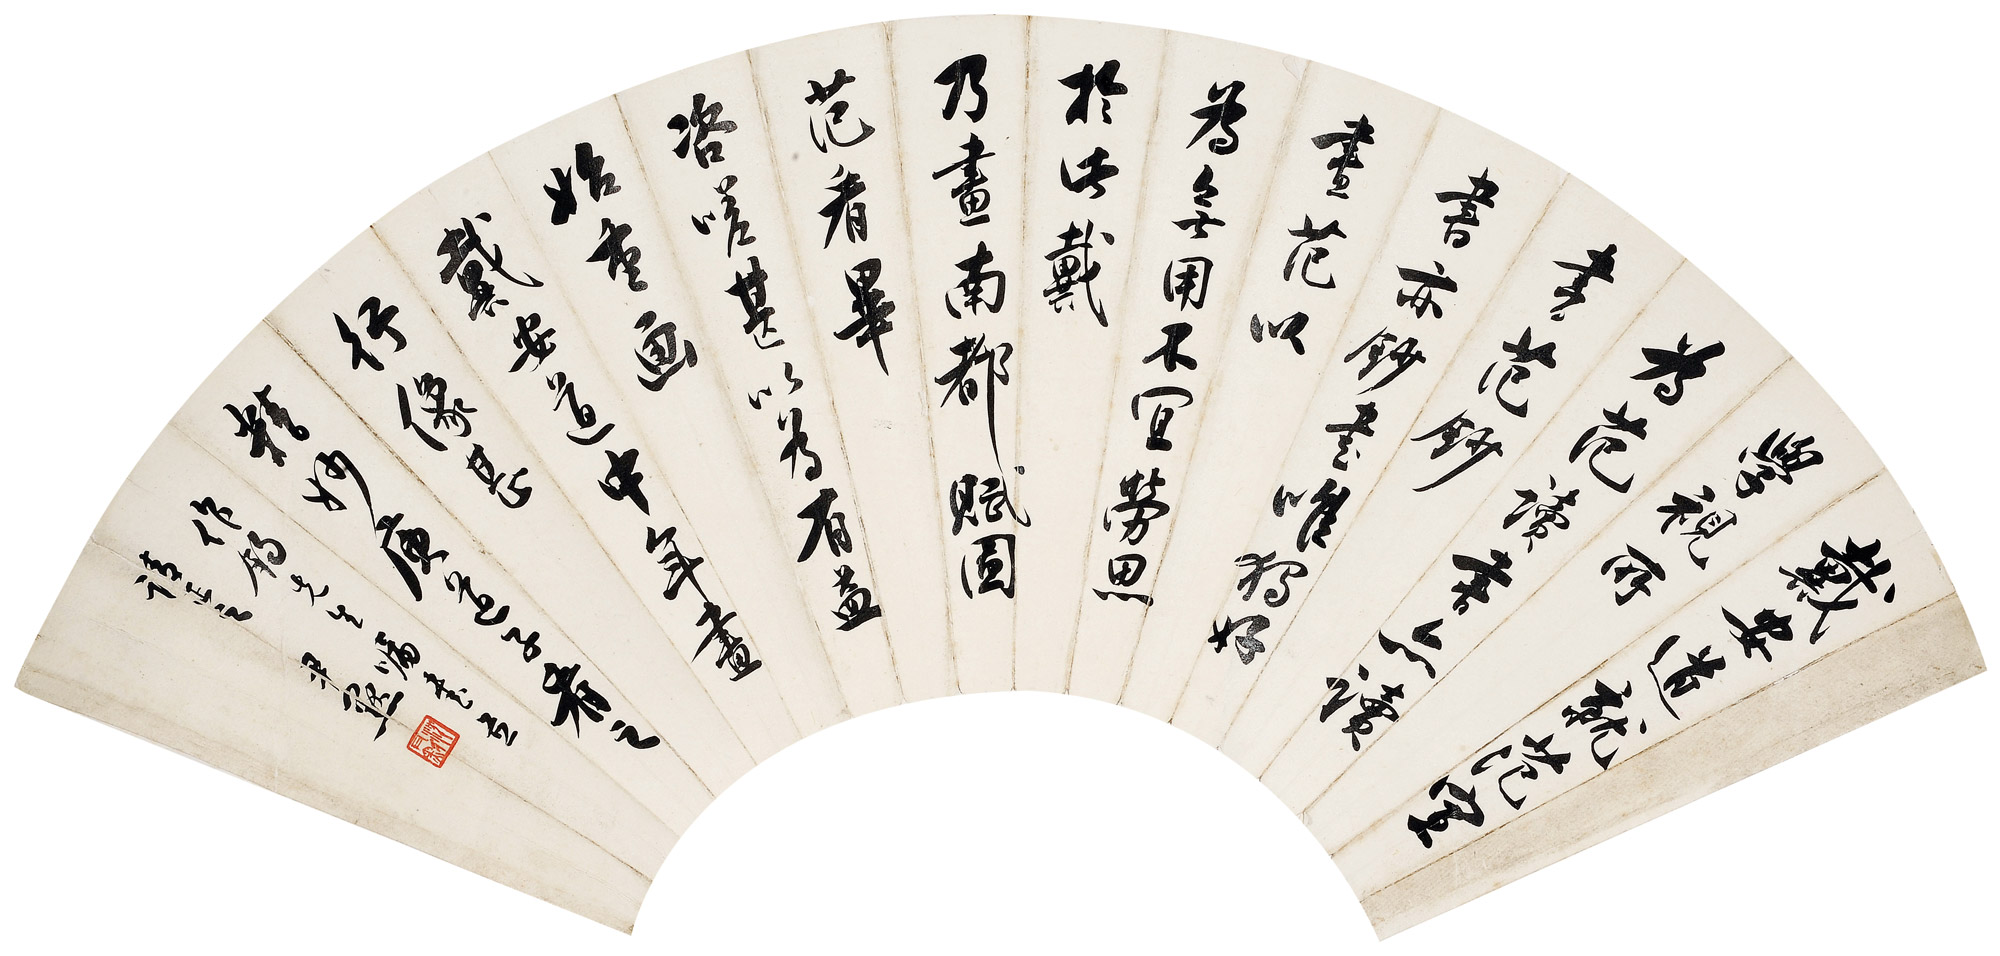 戴安道就范宣
學視所
為范讀書亦讀
書范鈔
書亦鈔書唯獨好
畫范以
為無用不宜勞思
於此戴
乃畫南都賦圖
范看畢
咨嗟甚以為有益
始重画
戴安道中年畫
行像甚
精妙庾道子看之
先生囑書
請正之
尹默